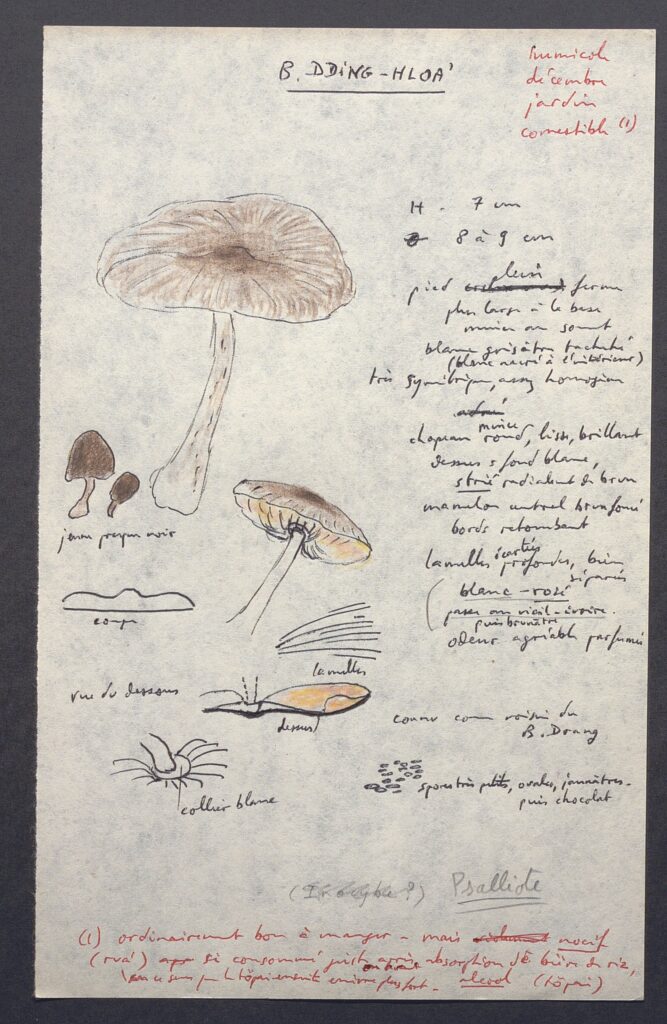 B. DDING-HLOA'
humicole
décembre
jardin
comestible (1)
H. 7 cm
8 à 9 cm
plein
pied ferme
plus large à la base
mince au sommet
blanc grisâtre tacheté
(blanc nacré à l'intérieur)
très symétrique, assez homogène
mince
chapeau rond, lisse, brillant
dessus s fond blanc,
strié radialement de brun
mamelon central brun foncé
bords retombant
jeune presque noir
écartées
lamelles profondes, bien
séparées
blanc-rosé
passe au vieil-ivoire.
puis brunâtre
odeur agréable parfumée
coupe
lamelles
vue du dessous
dessus
connu comme voisin du
B. Drang
spores très petites, ovales, jaunâtres -
puis chocolat
collier blanc
Psalliote
(1) ordinairement bon à manger - mais nocif
(rwá) si consommé juste après absorption de bière de riz,
alcool (töpai)